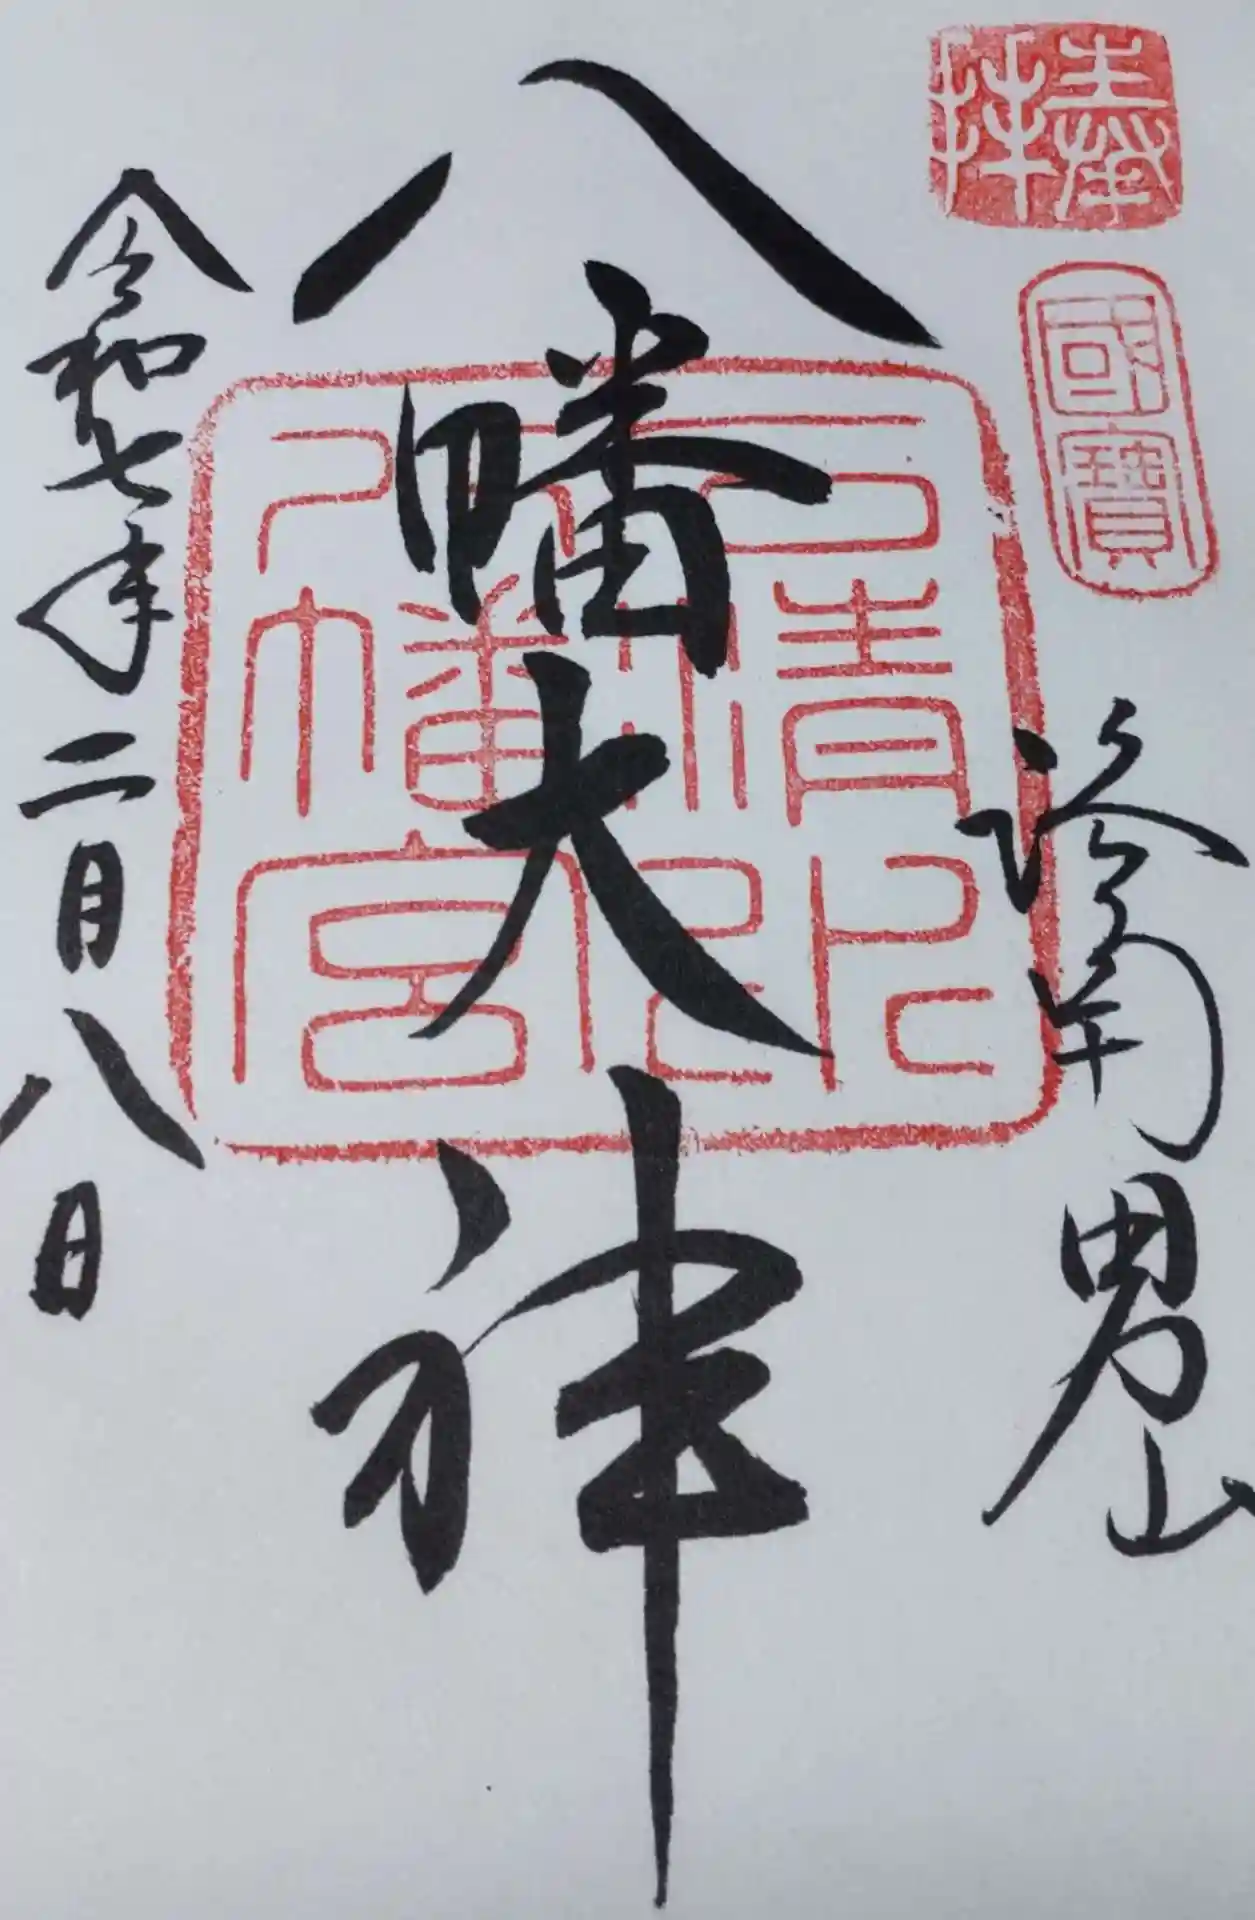 奉拝
國寶
洛南男山
八幡大神
石清水
八幡宮
令和七年二月八日